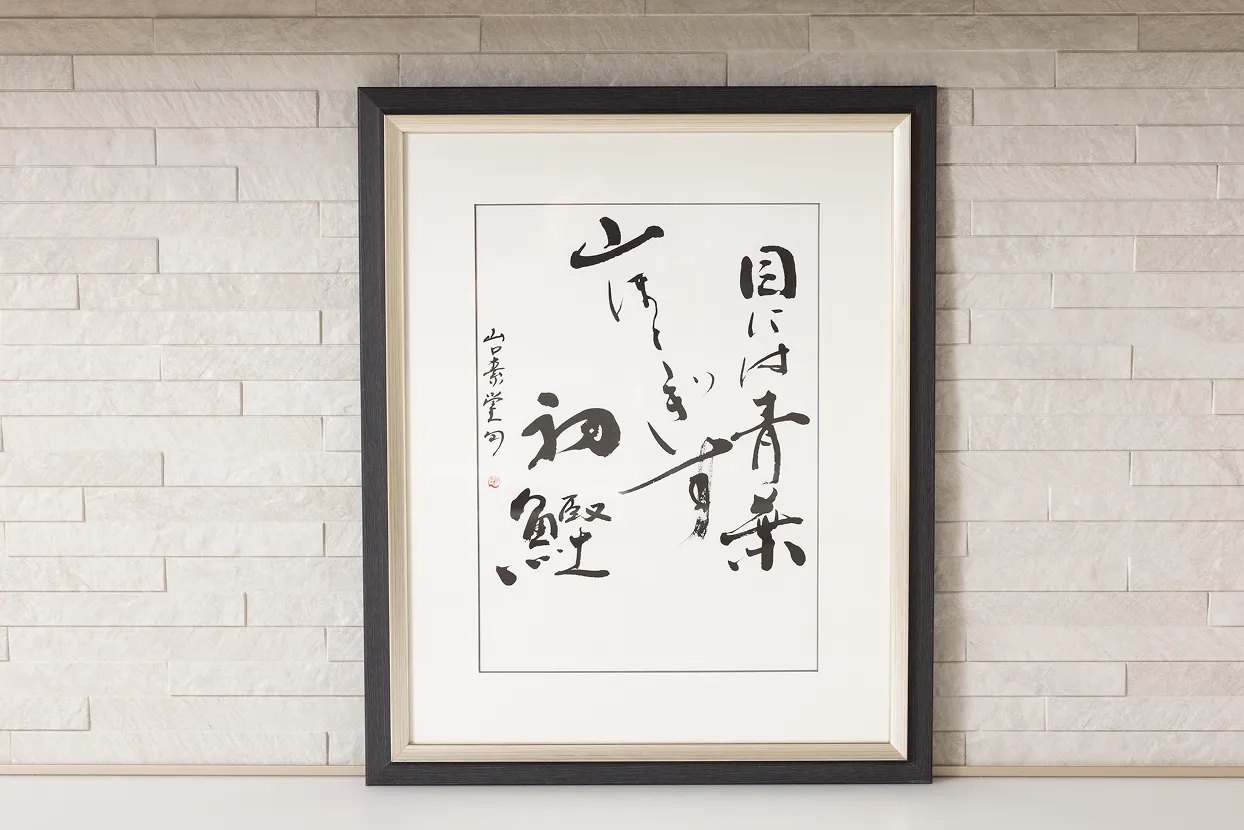 目には青葉
山ほとゝぎす
初鰹
山口素堂句